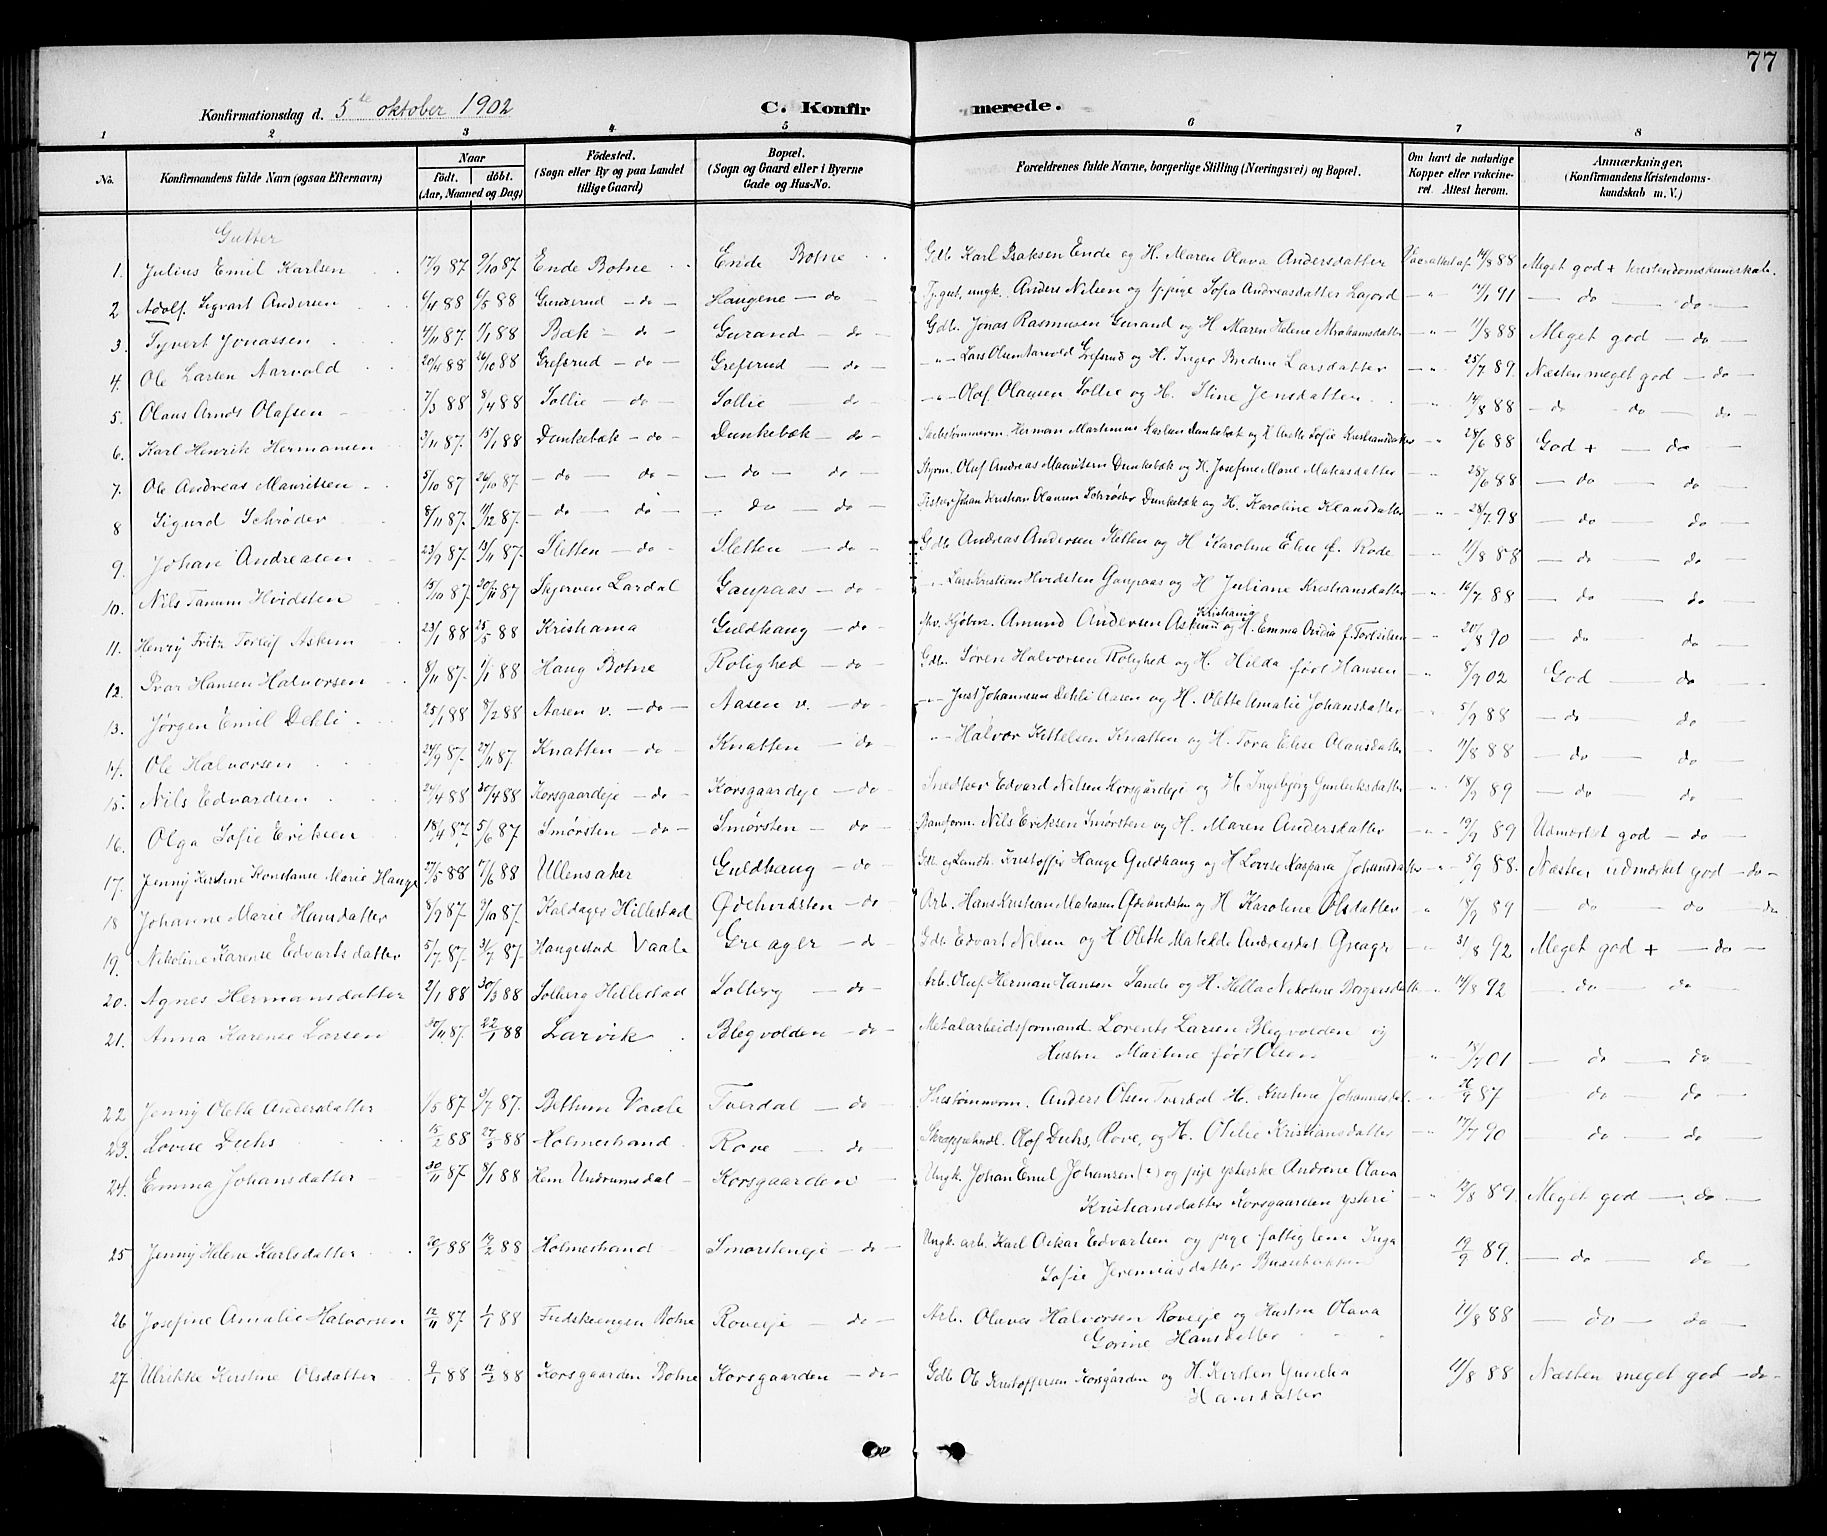 77
Konfirmationsdag d. 5te oktober 1902 C. Konfirmerede.
1 2 3 4 5 6 7 8
No. Konfirmandens fulde Navn (ogsaa Efternavn) Naar Födt. döbt. (Aar, Maaned og Dag) Födested. (Sogn eller By og paa Landet tillige Gaard) Bopæl. (Sogn og Gaard eller i Byerne Gade og Hus-No. Forældrenes fulde Navne, borgerlige Stilling (Næringsvei) og Bopæl. Om havt de naturlige Kopper eller vakcineret. Attest herom. Anmærkninger. (Konfirmandens Kristendomskundskab m. V.)
Gutter
1. Julius Emil Karlsen 17/9 87 9/10 87 Ende Botne Ende Botne Gdb. Karl Isaksen Ende og H. Maren Olava Andersdatter 14/8 88 Meget god + kristendomskundskab.
2 Adolf Sigvart Andersen 6/4 88 6/5 88 Gunnerud - do Haugene - do Tj.gut, ungk. Anders Nilsen og tj.pige Sofia Andreasdatter Lajord - " 14/1 91 - do - do -
3. Tyvert Jonassen 4/11 87. 1/1 88 Bæk - do - Gurand - do Gdb. Jonas Rasmusen Gurand og H Maren Helene Abrahamsdatter - " - 11/8 88 Meget god - do -
4. Ole Larsen Aarvold 20/4 88 26/10 88 Grefsrud - do Grefsrud - do " - Lars Olsen Aarvold Grefsrud og H. Inger Bredine Larsdatter - " 25/7 89 Næsten meget god - do -
5. Olaus Arnds Olafsen 7/3 88 8/4 88 Sollie - do Sollie - do - " - Olaf Olausen Sollie og H. Stine Jensdatter - " 14/8 88 - do do - do
6. Karl Henrik Hermansen 3/11 87. 15/1 88 Dunkebæk - do - Dunkebæk - do - Herman Martinius Karlsen Dunkebæk og H Anette Sofie Kristiansdatter " 28/6 88 God + - do -
7. Ole Andreas Mauritsen 5/10 87 26/10 87. - do do - - do - do - Styrm. Oluf Andreas Mauritsen Dunkebæk og H. Josefine Marie Matiasdatter - " 28/6 88 - do - do -
8 Sigurd Schrøder 8/11 87. 11/12 87. - do - do - do - do - Fisker Johan Kristian Olausen Schrøder Dunkebæk og H. Karoline Klausdatter - " - 28/7 98 - do do -
9. Johan Andreasen 23/9 87. 13/11 87. Sletten - do - Sletten - do - Gdb Andreas Andersen Sletten og H Karoline Elise f. Rode " 11/8 88 - do - do -
10. Nils Tanum Hvidsten 15/10 87. 20/11 87 Skjerven Lardal Gaupaas - do " - Lars Kristian Hvidsten Gaupaas og H Juliane Kristiansdatter - " 16/7 88 - do - do -
11. Henry Fritz Torleif Askim 23/1 88 25/5 88 Kristiania Guldhaug - do Amund Andersen Askim Kristiania og H. Emma Ovidia f. Torleifsen " 20/8 90 - do do -
12. Ivar Hansen Halvorsen 8/11 87. 1/1 88 Haug Botne Rolighed - do - Gdb. Søren Halvorsen Rolighed og H. Hilda født Hansen 8/9 02 God - do
13. Jørgen Emil Dehli 25/1 88 8/2 88 Aasen v. - do - Aasen v. - do - " - Just Johannesen Dehli Aasen og H. Olette Amalie Johansdatter " 5/9 88 - do - do -
14. Ole Halvorsen 24/9 87. 27/11 87 Knatten - do Knatten - do " - Halvor Kittelsen Knatten og H. Tora Elise Olausdatter " 11/8 88 - do - do -
15. Nils Edvardsen 24/4 88 30/4 88 Korsgaardeje - do - Korsgaardeje - do Snedker Edvard Nilsen Korsgårdeje og H. Ingebjørg Gunleiksdatter - " 18/9 89 - do - do -
16. Olga Sofie Eriksen 18/4 87. 5/6 87 Smørsten - do - Smørsten - do Baneform. Nils Eriksen Smørsten og H. Maren Andersdatter - " - 19/9 89 Udmerket god - do -
17. Jenny Kirstine Konstanse Marie Hauge 27/5 88 17/6 88 Ullensaker Guldhaug - do Gdb og Landh. Kristoffer Hauge Guldhaug og H Lovise Kaspara Johansdatter " 5/9 88. Næsten udmerket god - do -
18 Johanne Marie Hansdatter 8/9 87. 9/10 87. Kaldager Hillestad Ødehvidsten - do Arb. Hans Kristian Matiasen Ødehvidsten og H Karoline Olsdatter - " 18/9 89 - do - do - do
19. Nikoline Karense Edvartsdatter 5/7 87. 31/7 87. Haugestad Vaale Greager - do Gdb. Edvart Nilsen og H Olette Matilde Andreasdat Greager - " 31/8 92 Meget god + - do -
20. Agnes Hermansdatter 2/1 88 30/3 88 Solberg Hillestad Solberg - do Arb. Oluf Herman Hansen Sande og H. Hella Nikoline Borgersdatter " 14/8 92 - do - do -
21. Anna Karense Larsen 30/11 87. 22/1 88 Larvik Blegvolden - do Metalarbeidsformand. Lorents Larsen Blegvolden og
Hustru Martine født Olsen " 18/7 01 - do - do -
22 Jenny Olette Andersdatter 1/5 87 3/7 87. Bettum Vaale Tverdal - do Anders Olsen Tverdal H. Kristine Johannesdat. " 26/9 87 - do - do -
23. Lovise Duhs 15/2 88 27/3 88 Holmestrand Rove - do Skrappehandl. Olof Duhs, Rove, og H. Otilie Kristiansdatter 17/7 90 - do - do -
24. Emma Johansdatter 30/11 87 8/1 88 Hem Undrumsdal - Korsgaarden - Ungk. Johan Emil Johansen (?) og pige ysterske Andrene Olava
Kristiansdatter Korsgaarden ysteri " 12/8 89 Meget god - do -
25 Jenny Helene Karlsdatter 20/1 88 19/2 88 Holmestrand Smørsteneje - do - Ungk. arb. Karl Oskar Edvartsen og pige fattiglem Inga
Sofie Jeremiasdatter 19/9 89. - do - do
26 Josefine Amalie Halvorsen 12/11 87 1/1 88 Botne Roveeje - do - Arb. Olaves Halvorsen Roveeje og Hustru Olava
Gorine Hansdatter 21/8 88 - do - do -
27 Ulrikke Kirstine Olsdatter 9/1 88 12/2 88 Korsgaarden Botne Korsgaarden - do - Gdb Ole Kristoffersen Korsgården og H. Kirsten Gundia
Hansdatter 11/8 88 Næsten meget god - do -